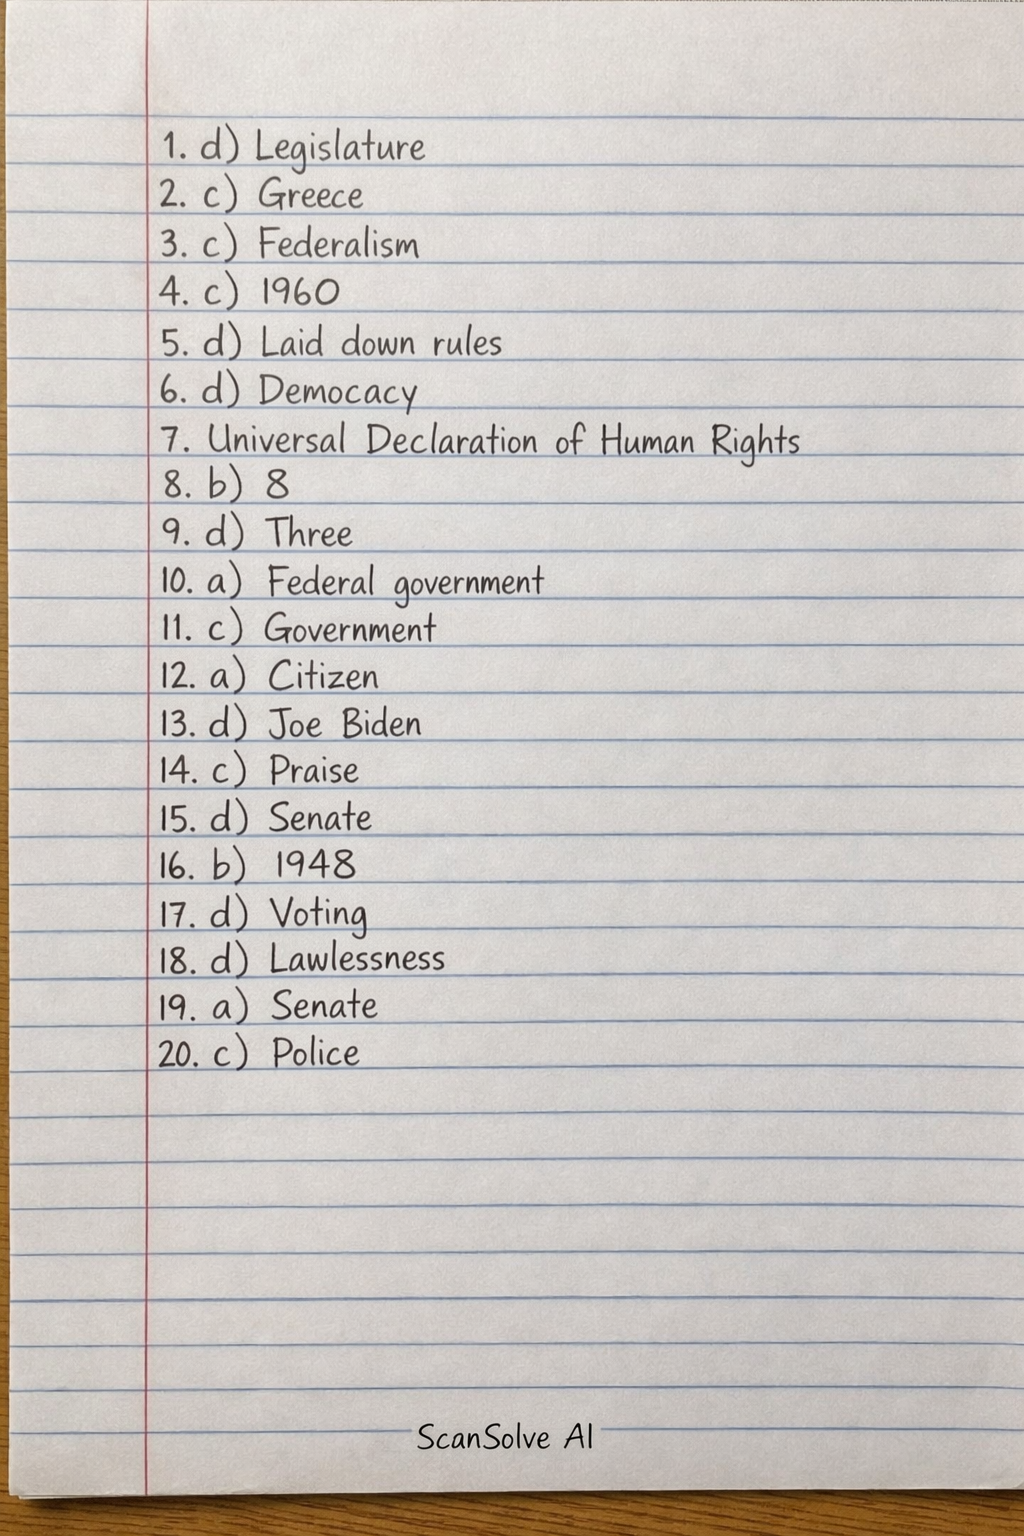 1. d) Legislature
2. c) Greece
3. c) Federalism
4. c) 1960
5. d) Laid down rules
6. d) Democacy
7. Universal Declaration of Human Rights
8. b) 8
9. d) Three
10. a) Federal government
11. c) Government
12. a) Citizen
13. d) Joe Biden
14. c) Praise
15. d) Senate
16. b) 1948
17. d) Voting
18. d) Lawlessness
19. a) Senate
20. c) Police
ScanSolve AI